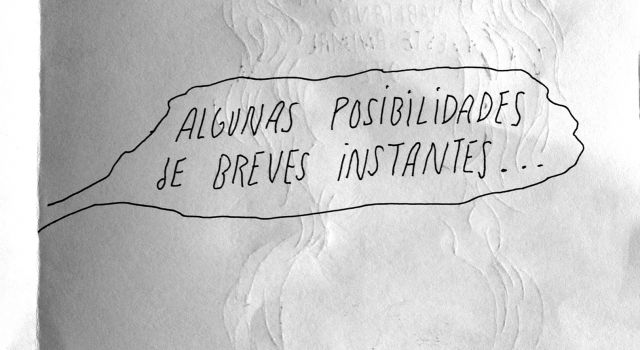 ALGUNAS POSIBILIDADES
dE BREVES INSTANTES...